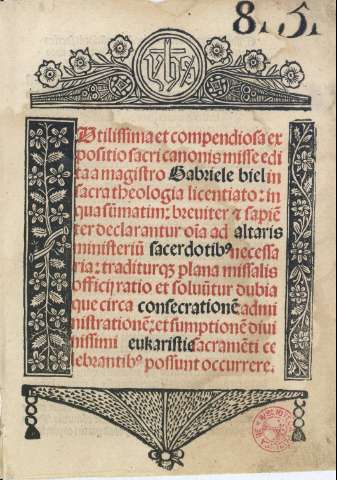 8.151
yhs
Utilissima et compendiosa ex
positio sacri canonis misse edi
ta a magistro Gabriele biel in
sacra theologia licentiato: in
qua sũmatim: breuiter ⁊ sapiẽ
ter declarantur oĩa ad altaris
ministeriũ sacerdotibꝰ necessa
ria: traditurqꝫ plana missalis
officij ratio et soluũtur dubia
que circa consecrationẽ admi
nistrationẽ: et sumptionẽ diui
nissimi eukaristie sacramẽti ce
lebrantibꝰ possunt occurrere.